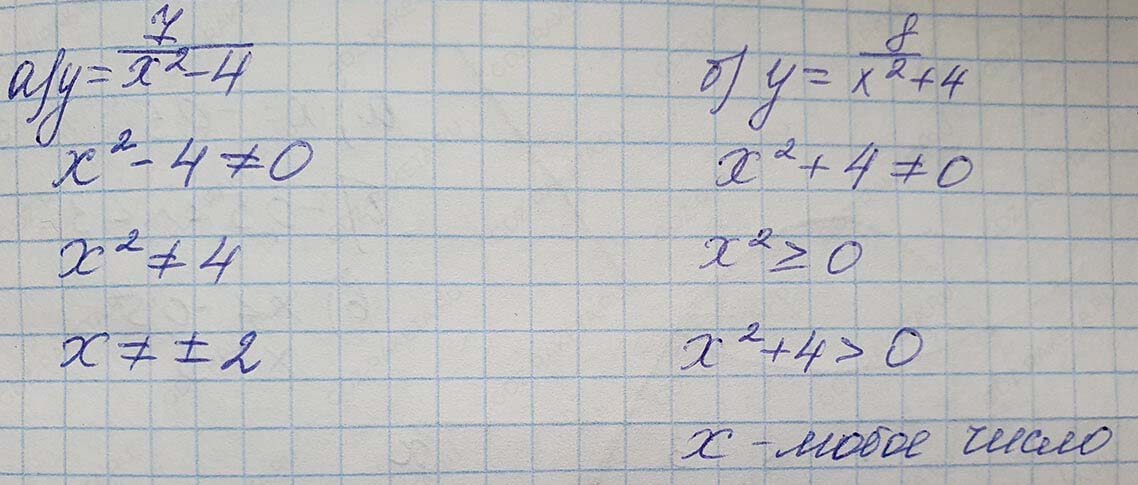 а) y = 7/(x² - 4)
x² - 4 ≠ 0
x² ≠ 4
x ≠ ± 2
б) y = 8/(x² + 4)
x² + 4 ≠ 0
x² ≥ 0
x² + 4 > 0
x - любое число